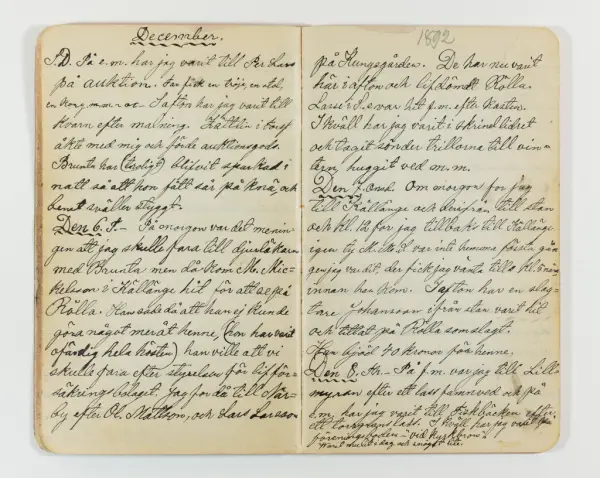 December.
S.D. På e.m. har jag varit till Per Lars
på auktion. Far fick en tröja, en stol,
en korg m.m. I afton har jag varit till
kvarn efter malning. i torsf
åkte med mig och förde auktionsgods.
Brunta har (troligt) blifvit sparkad i
natt så att hon fått sår på knä, och
benet sväller styggt.
Den 6. T. — På morgon var det menin-
gen att jag skulle fara till djurläkaren
med Brunta men då kom M. Mic-
kelsson i Källänge hit för att se på
Rölla. Han sade då att han ej kunde
göra något mer åt henne, (hon har varit
ofärdig hela hösten) han ville att vi
skulle fara efter styrelsen för lifför-
säkringsbolaget. Jag for då till När-
by efter Ol. Mattson, och Lars Larsson
1892
på Kungsgården. De har nu varit
här i afton och lifdömdt Rölla.
Lasse var hit f.m. efter kasten.
I kväll har jag varit i skrinelidret
och tagit sönder trillorna till vin-
tern, huggit ved m.m.
Den 7. Ons. Om morgon for jag
till Källänge och derifrån till stan
och kl. 12 for jag tillbaka till Källänge
igen ty M. M.S. var inte hemma första gån
gen jag var dit, der fick jag vänta till kl. 5
innan han kom. I afton har en slag-
tare Johansson ifrån stan varit hit
och tittat på Rölla som slagt.
Han bjöd 40 kronor för henne.
Den 8. Th. — På f.m. var jag till Lill
myran efter ett lass famnved och på
e.m. har jag varit till Fiskbäcken efter
ett torrgranslass. I kväll har jag varit på
föreningsboden vid Kyrkbron
Warit mulet i dag och snögat lite.